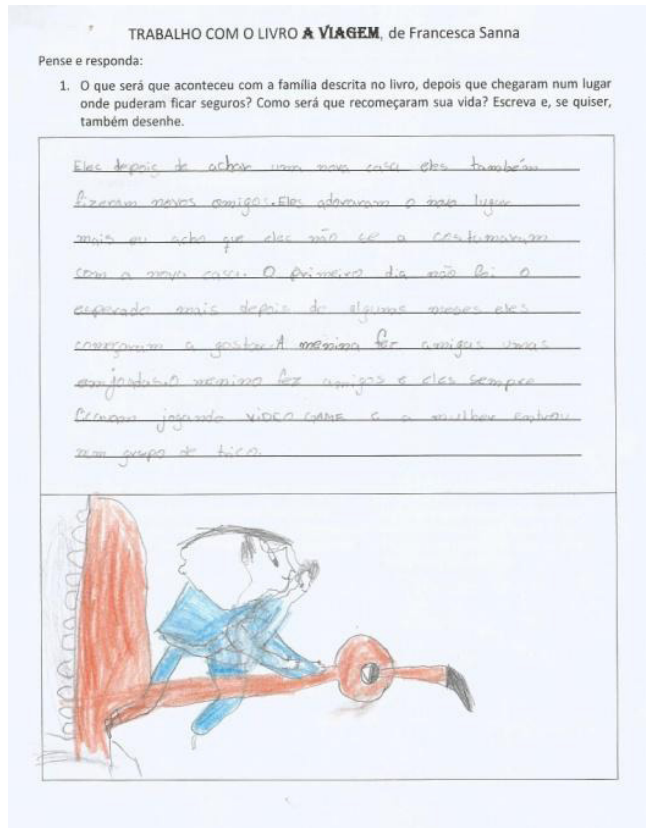 TRABALHO COM O LIVRO A VIAGEM, de Francesca Sanna
Pense e responda:
1. O que será que aconteceu com a família descrita no livro, depois que chegaram num lugar
onde puderam ficar seguros? Como será que recomeçaram sua vida? Escreva e, se quiser,
também desenhe.
Eles depois de achar uma nova casa eles também
fizeram novos amigos. Eles adoraram o novo lugar
mais eu acho que eles não se a costumaram
com a nova casa. O primeiro dia não foi o
esperado mais depois de alguns meses eles
começaram a gostar. A menina fez amigas umas
O menino fez amigos e eles sempre
jogando VIDEO GAME e a mulher entrou
num grupo de